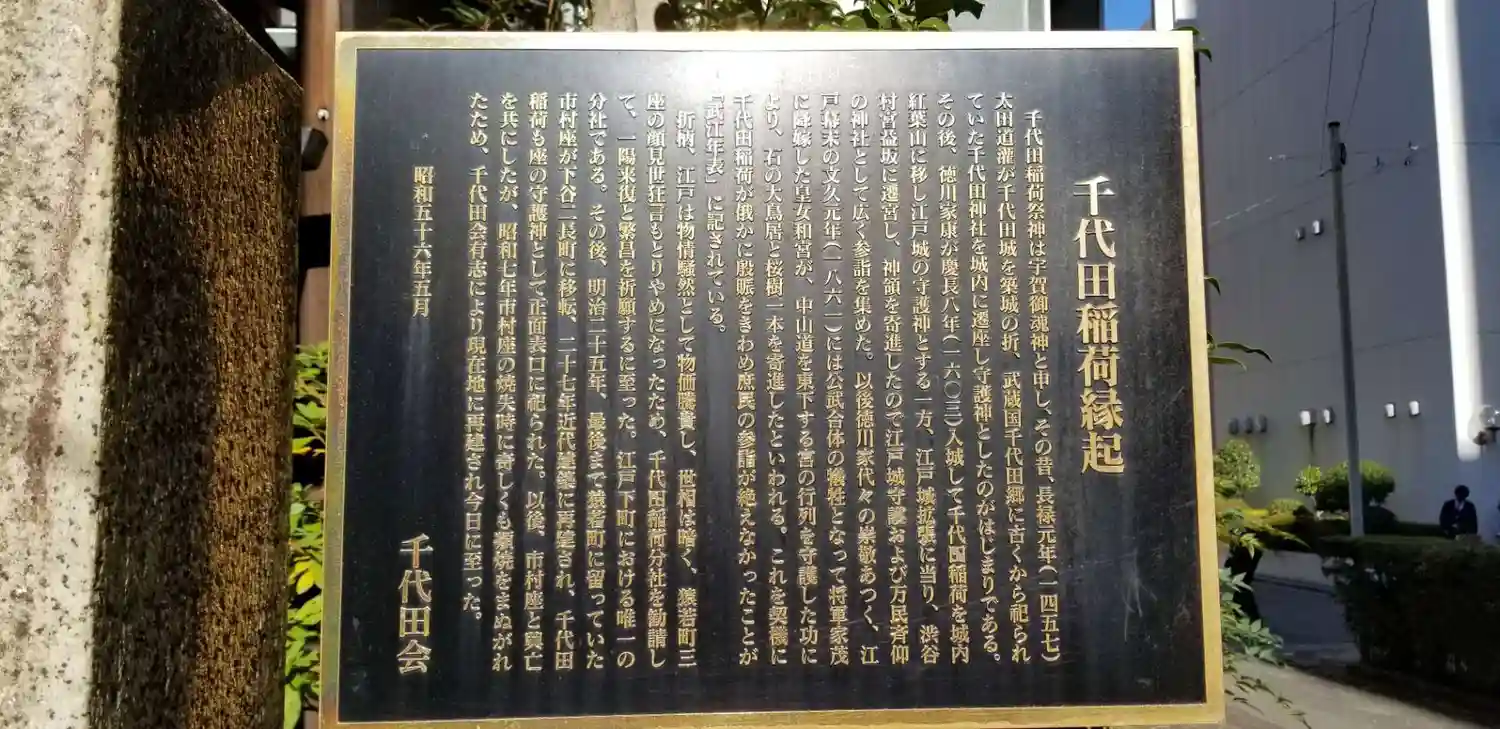 千代田稲荷縁起
千代田稲荷祭神は宇賀御魂神と申し、その昔、長禄元年(一四五七)
太田道灌が千代田城を築城の折、武蔵国千代田郷に古くから祀られ
ていた千代田神社を城内に遷座し守護神としたのがはじまりである。
その後、徳川家康が慶長八年(一六〇三)入城して千代田稲荷を城内
紅葉山に移し江戸城の守護神とする一方、江戸城拡張に当り、渋谷
村宮益坂に遷宮し、神領を寄進したので江戸城守護および万民斉仰
の神社として広く参詣を集めた。以後徳川家代々の崇敬あつく、江
戸幕末の文久元年(一八六一)には公武合体の犠牲となって将軍家茂
に降嫁した皇女和宮が、中山道を東下する宮の行列を守護した功に
より、石の大鳥居と桜樹二本を寄進したといわれる。これを契機に
千代田稲荷が俄かに殷賑をきわめ庶民の参詣が絶えなかったことが
「武江年表」に記されている。
折柄、江戸は物情騒然として物価騰貴し、世相は暗く、猿若町三
座の顔見世狂言もとりやめになったため、千代田稲荷分社を勧請し
て、一陽来復と繁昌を祈願するに至った。江戸下町における唯一の
分社である。その後、明治二十五年、最後まで猿若町に留っていた
市村座が下谷二長町に移転、二十七年近代建築に再建され、千代田
稲荷も座の守護神として正面表口に祀られた。以後、市村座と興亡
を共にしたが、昭和七年市村座の焼失時に奇しくも類焼をまぬがれ
たため、千代田会有志により現在地に再建され今日に至った。
昭和五十六年五月
千代田会